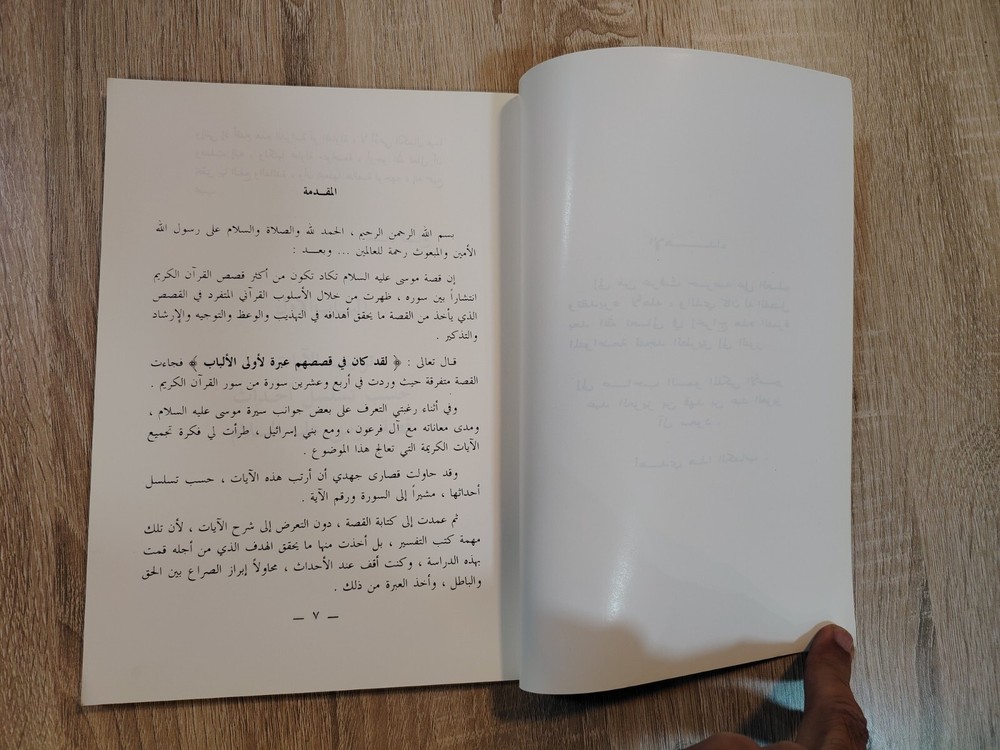 المقدمة
بسم الله الرحمن الرحيم ، الحمد لله والصلاة والسلام على رسول الله
الأمين والمبعوث رحمة للعالمين ... وبعد :
إن قصة موسى عليه السلام تكاد تكون من أكثر قصص القرآن الكريم
انتشاراً بين سوره ، ظهرت من خلال الأسلوب القرآني المتفرد في القصص
الذي يأخذ من القصة ما يحقق أهدافه في التهذيب والوعظ والتوجيه والإرشاد
والتذكير .
قال تعالى : ﴿ لقد كان في قصصهم عبرة لأولى الألباب ﴾ فجاءت
القصة متفرقة حيث وردت في أربع وعشرين سورة من سور القرآن الكريم .
وفي أثناء رغبتي التعرف على بعض جوانب سيرة موسى عليه السلام ،
ومدى معاناته مع آل فرعون ، ومع بني إسرائيل ، طرأت لي فكرة تجميع
الآيات الكريمة التي تعالج هذا الموضوع .
وقد حاولت قصارى جهدي أن أرتب هذه الآيات ، حسب تسلسل
أحداثها ، مشيراً إلى السورة ورقم الآية .
ثم عمدت إلى كتابة القصة ، دون التعرض إلى شرح الآيات ، لأن تلك
مهمة كتب التفسير ، بل أخذت منها ما يحقق الهدف الذي من أجله قمت
بهذه الدراسة ، وكنت أقف عند الأحداث ، محاولاً إبراز الصراع بين الحق
والباطل ، وأخذ العبرة من ذلك .
— ٧ —